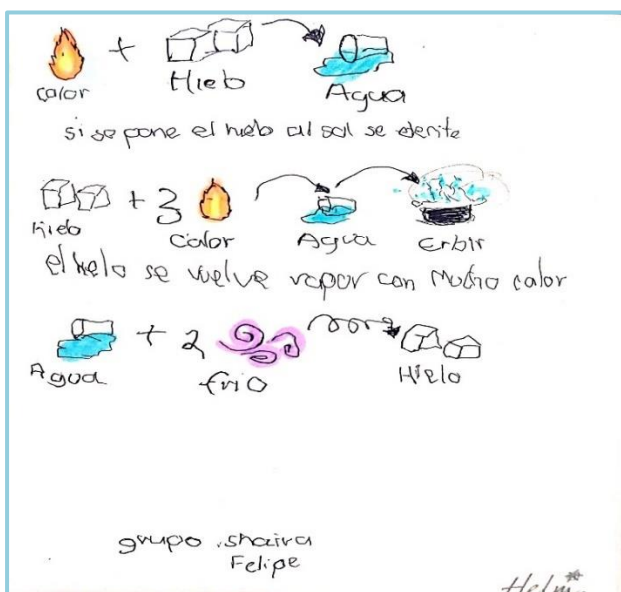 calor + Hielo Agua
si se pone el hielo al sol se derite
Hielo + 3 Calor Agua Erbir
el hielo se vuelve vapor con mucho calor
Agua + 2 frio Hielo
grupo shaira
Felipe